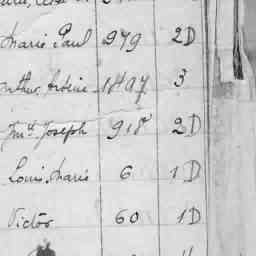 Marie Paul 979 2D
Arsène 1897 3
Joseph 918 2D
Louis, Marie 6 1D
Victor 60 1D